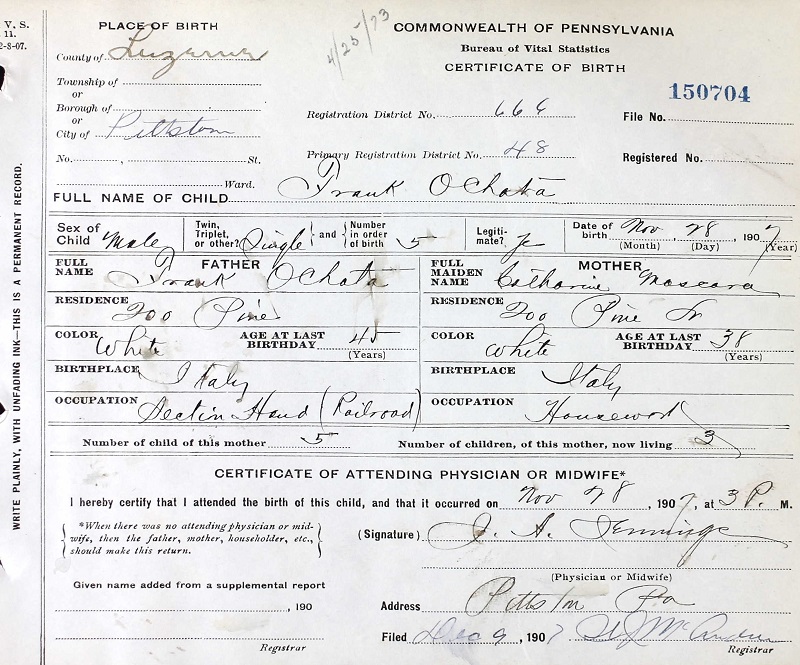 V. S.
11.
2-8-07.
WRITE PLAINLY, WITH UNFADING INK—THIS IS A PERMANENT RECORD.
PLACE OF BIRTH
County of Luzerne
Township of
or
Borough of
or
City of Pittston
No. , St.
Ward.
4/25/73
COMMONWEALTH OF PENNSYLVANIA
Bureau of Vital Statistics
CERTIFICATE OF BIRTH
150704
Registration District No. 666
File No.
Primary Registration District No. 48
Registered No.
FULL NAME OF CHILD Frank Ochata
Sex of Child Male
Twin, Triplet, or other? Single and Number in order of birth 5
Legitimate?
Date of birth Nov 28, 1907
(Month) (Day) (Year)
FATHER
FULL NAME Frank Ochata
RESIDENCE 200 Pine
COLOR White AGE AT LAST BIRTHDAY 45
(Years)
BIRTHPLACE Italy
OCCUPATION Sectin Hand (Railroad)
MOTHER
FULL MAIDEN NAME Catharine Mascara
RESIDENCE 200 Pine
COLOR White AGE AT LAST BIRTHDAY 38
(Years)
BIRTHPLACE Italy
OCCUPATION Housework
Number of child of this mother 5 Number of children, of this mother, now living 3
CERTIFICATE OF ATTENDING PHYSICIAN OR MIDWIFE*
I hereby certify that I attended the birth of this child, and that it occurred on Nov 28, 1907, at 3 P. M.
*When there was no attending physician or mid-
wife, then the father, mother, householder, etc.,
should make this return.
(Signature) J. A. Jennings
(Physician or Midwife)
Given name added from a supplemental report
, 190
Registrar
Address Pittston Pa
Filed Dec 9, 1907
Registrar